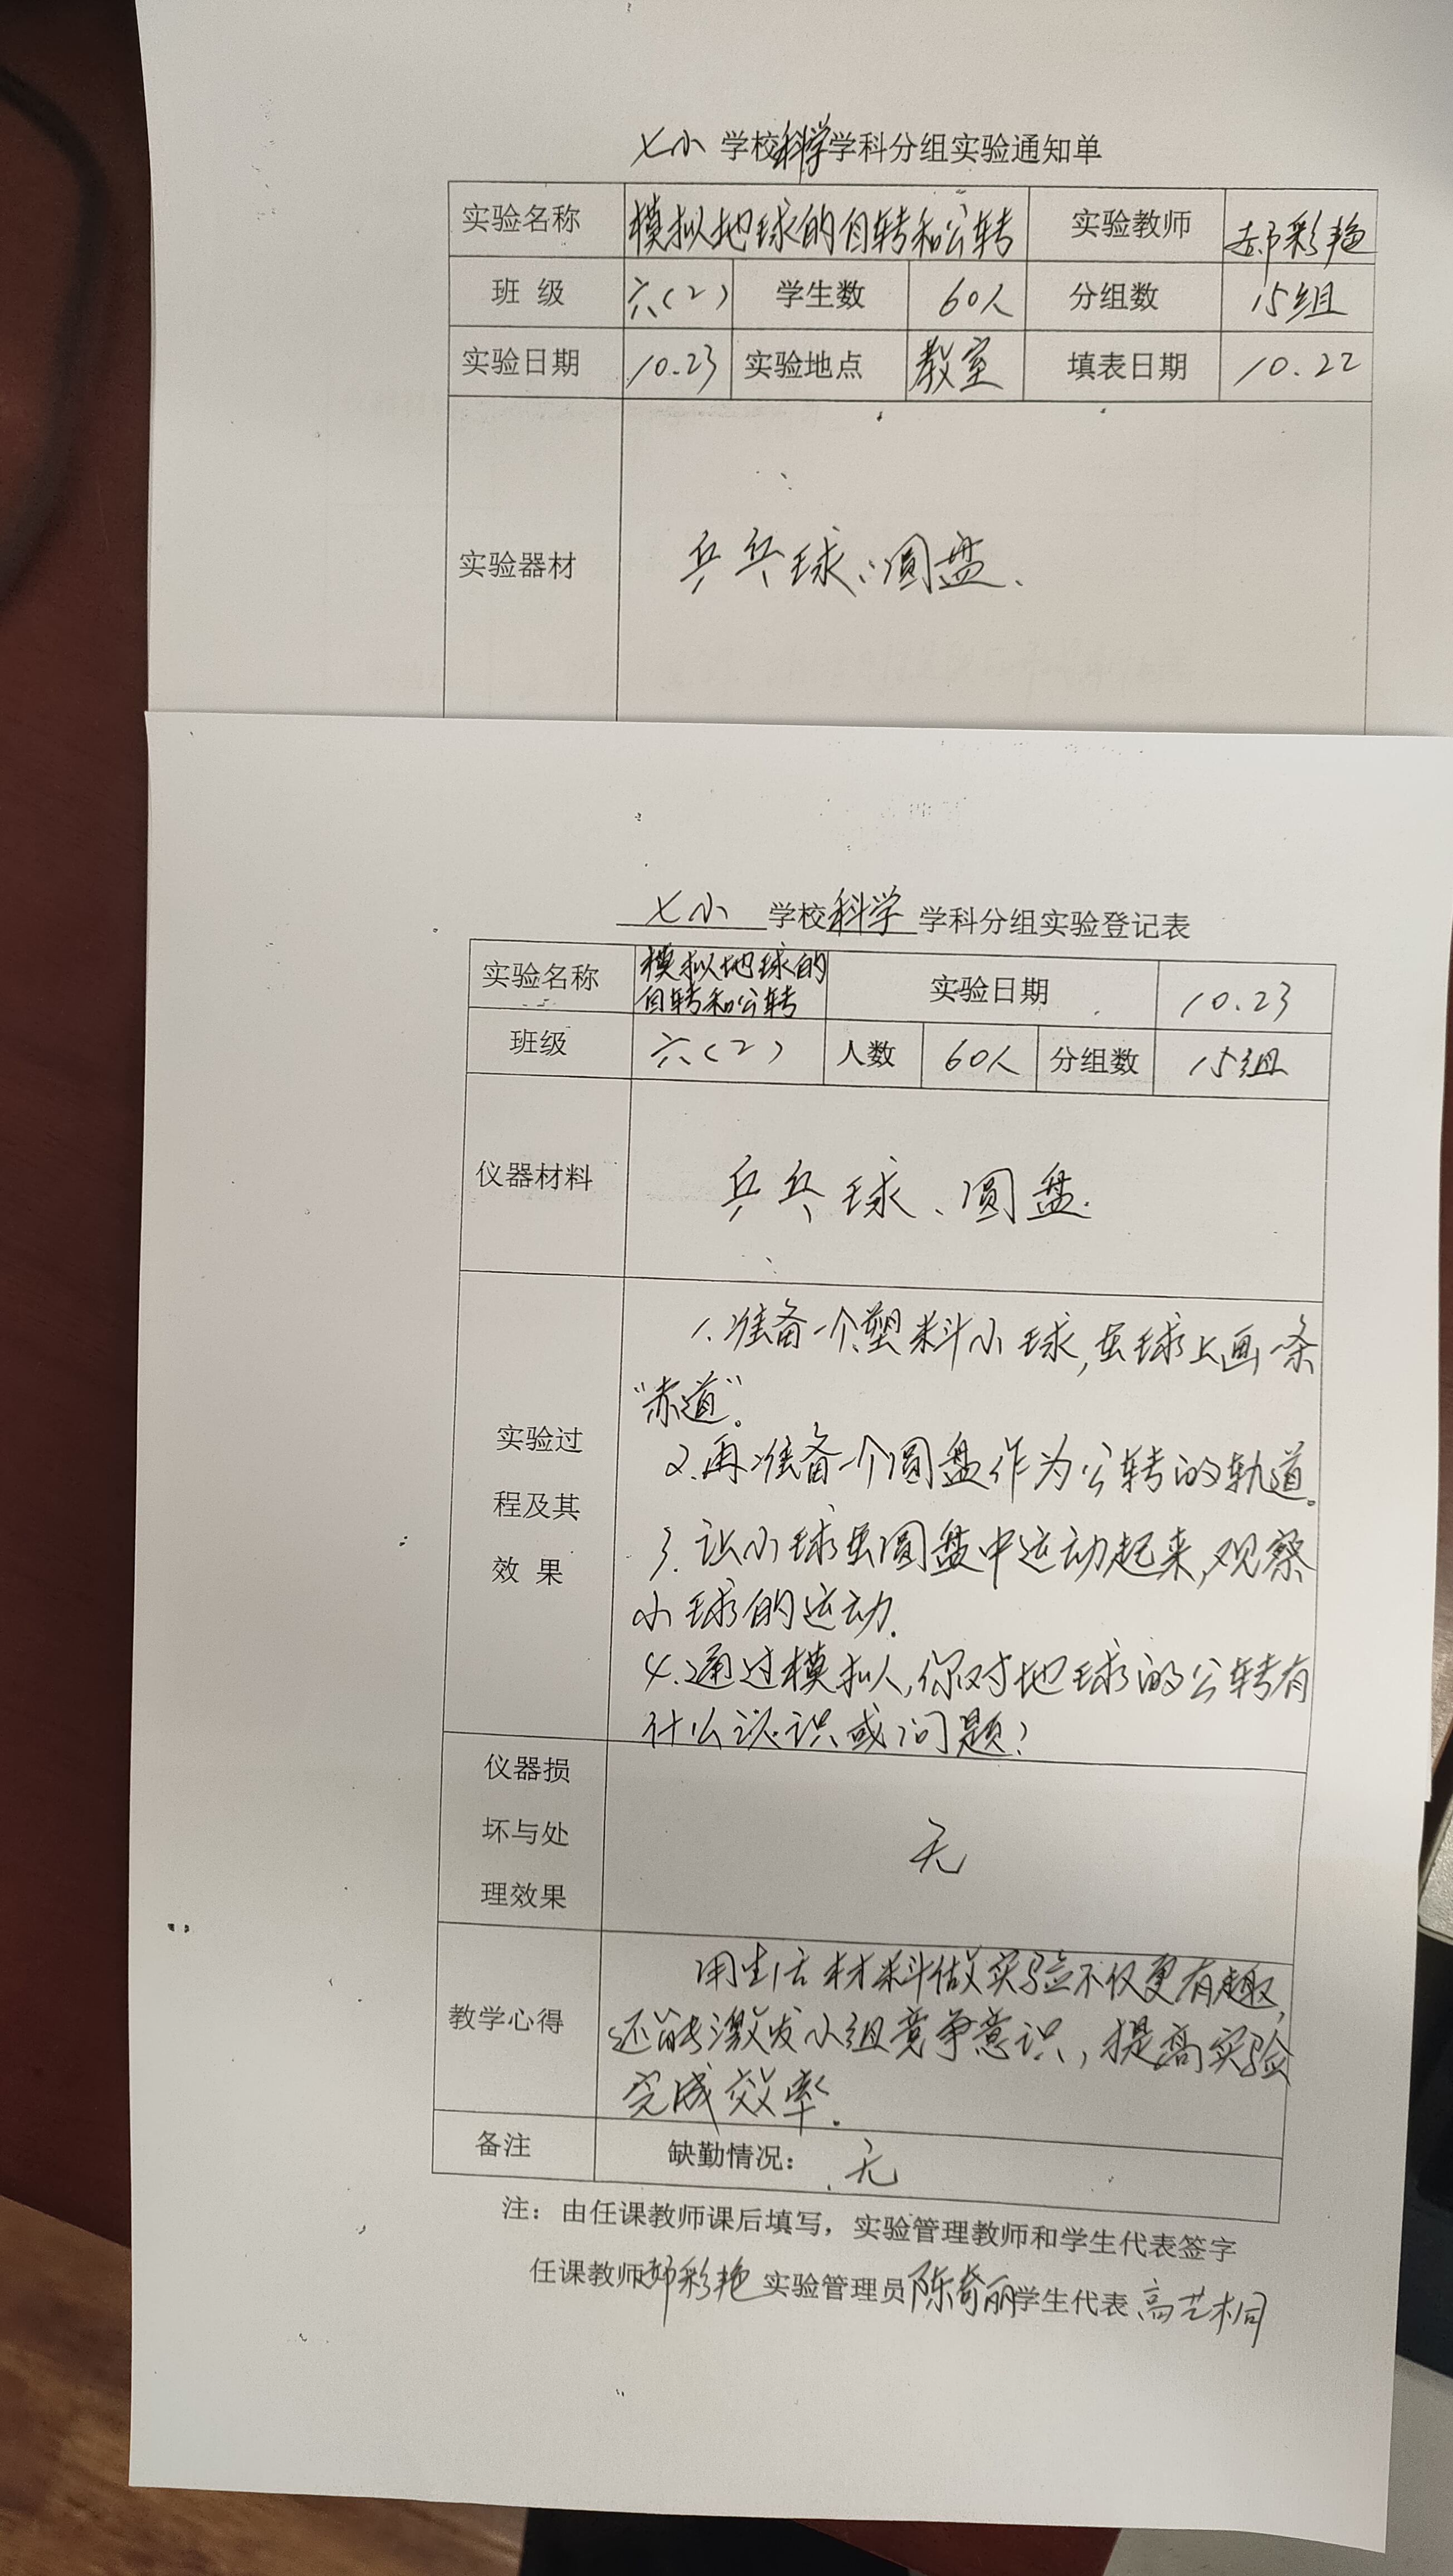 七小 学校科学学科分组实验通知单
实验名称 模拟地球的自转和公转 实验教师 郝彩艳
班级 六(2) 学生数 60人 分组数 15组
实验日期 10.23 实验地点 教室 填表日期 10.22
实验器材 乒乓球、圆盘、
七小 学校科学 学科分组实验登记表
实验名称 模拟地球的 实验日期 10.23
自转和公转
班级 六(2) 人数 60人 分组数 15组
仪器材料 乒乓球、圆盘.
1.准备一个塑料小球,在球上画一条
"赤道"。
实验过
2.再准备一个圆盘作为公转的轨道。
程及其
3.让小球在圆盘中运动起来,观察
效果
小球的运动.
4.通过模拟,你对地球的公转有
什么认识或问题?
仪器损
坏与处 无
理效果
用生活材料做实验不仅更有趣,
教学心得 还能激发小组竞争意识,提高实验
完成效率.
备注 缺勤情况: 无
注:由任课教师课后填写,实验管理教师和学生代表签字
任课教师郝彩艳 实验管理员陈奇丽学生代表高艺桐